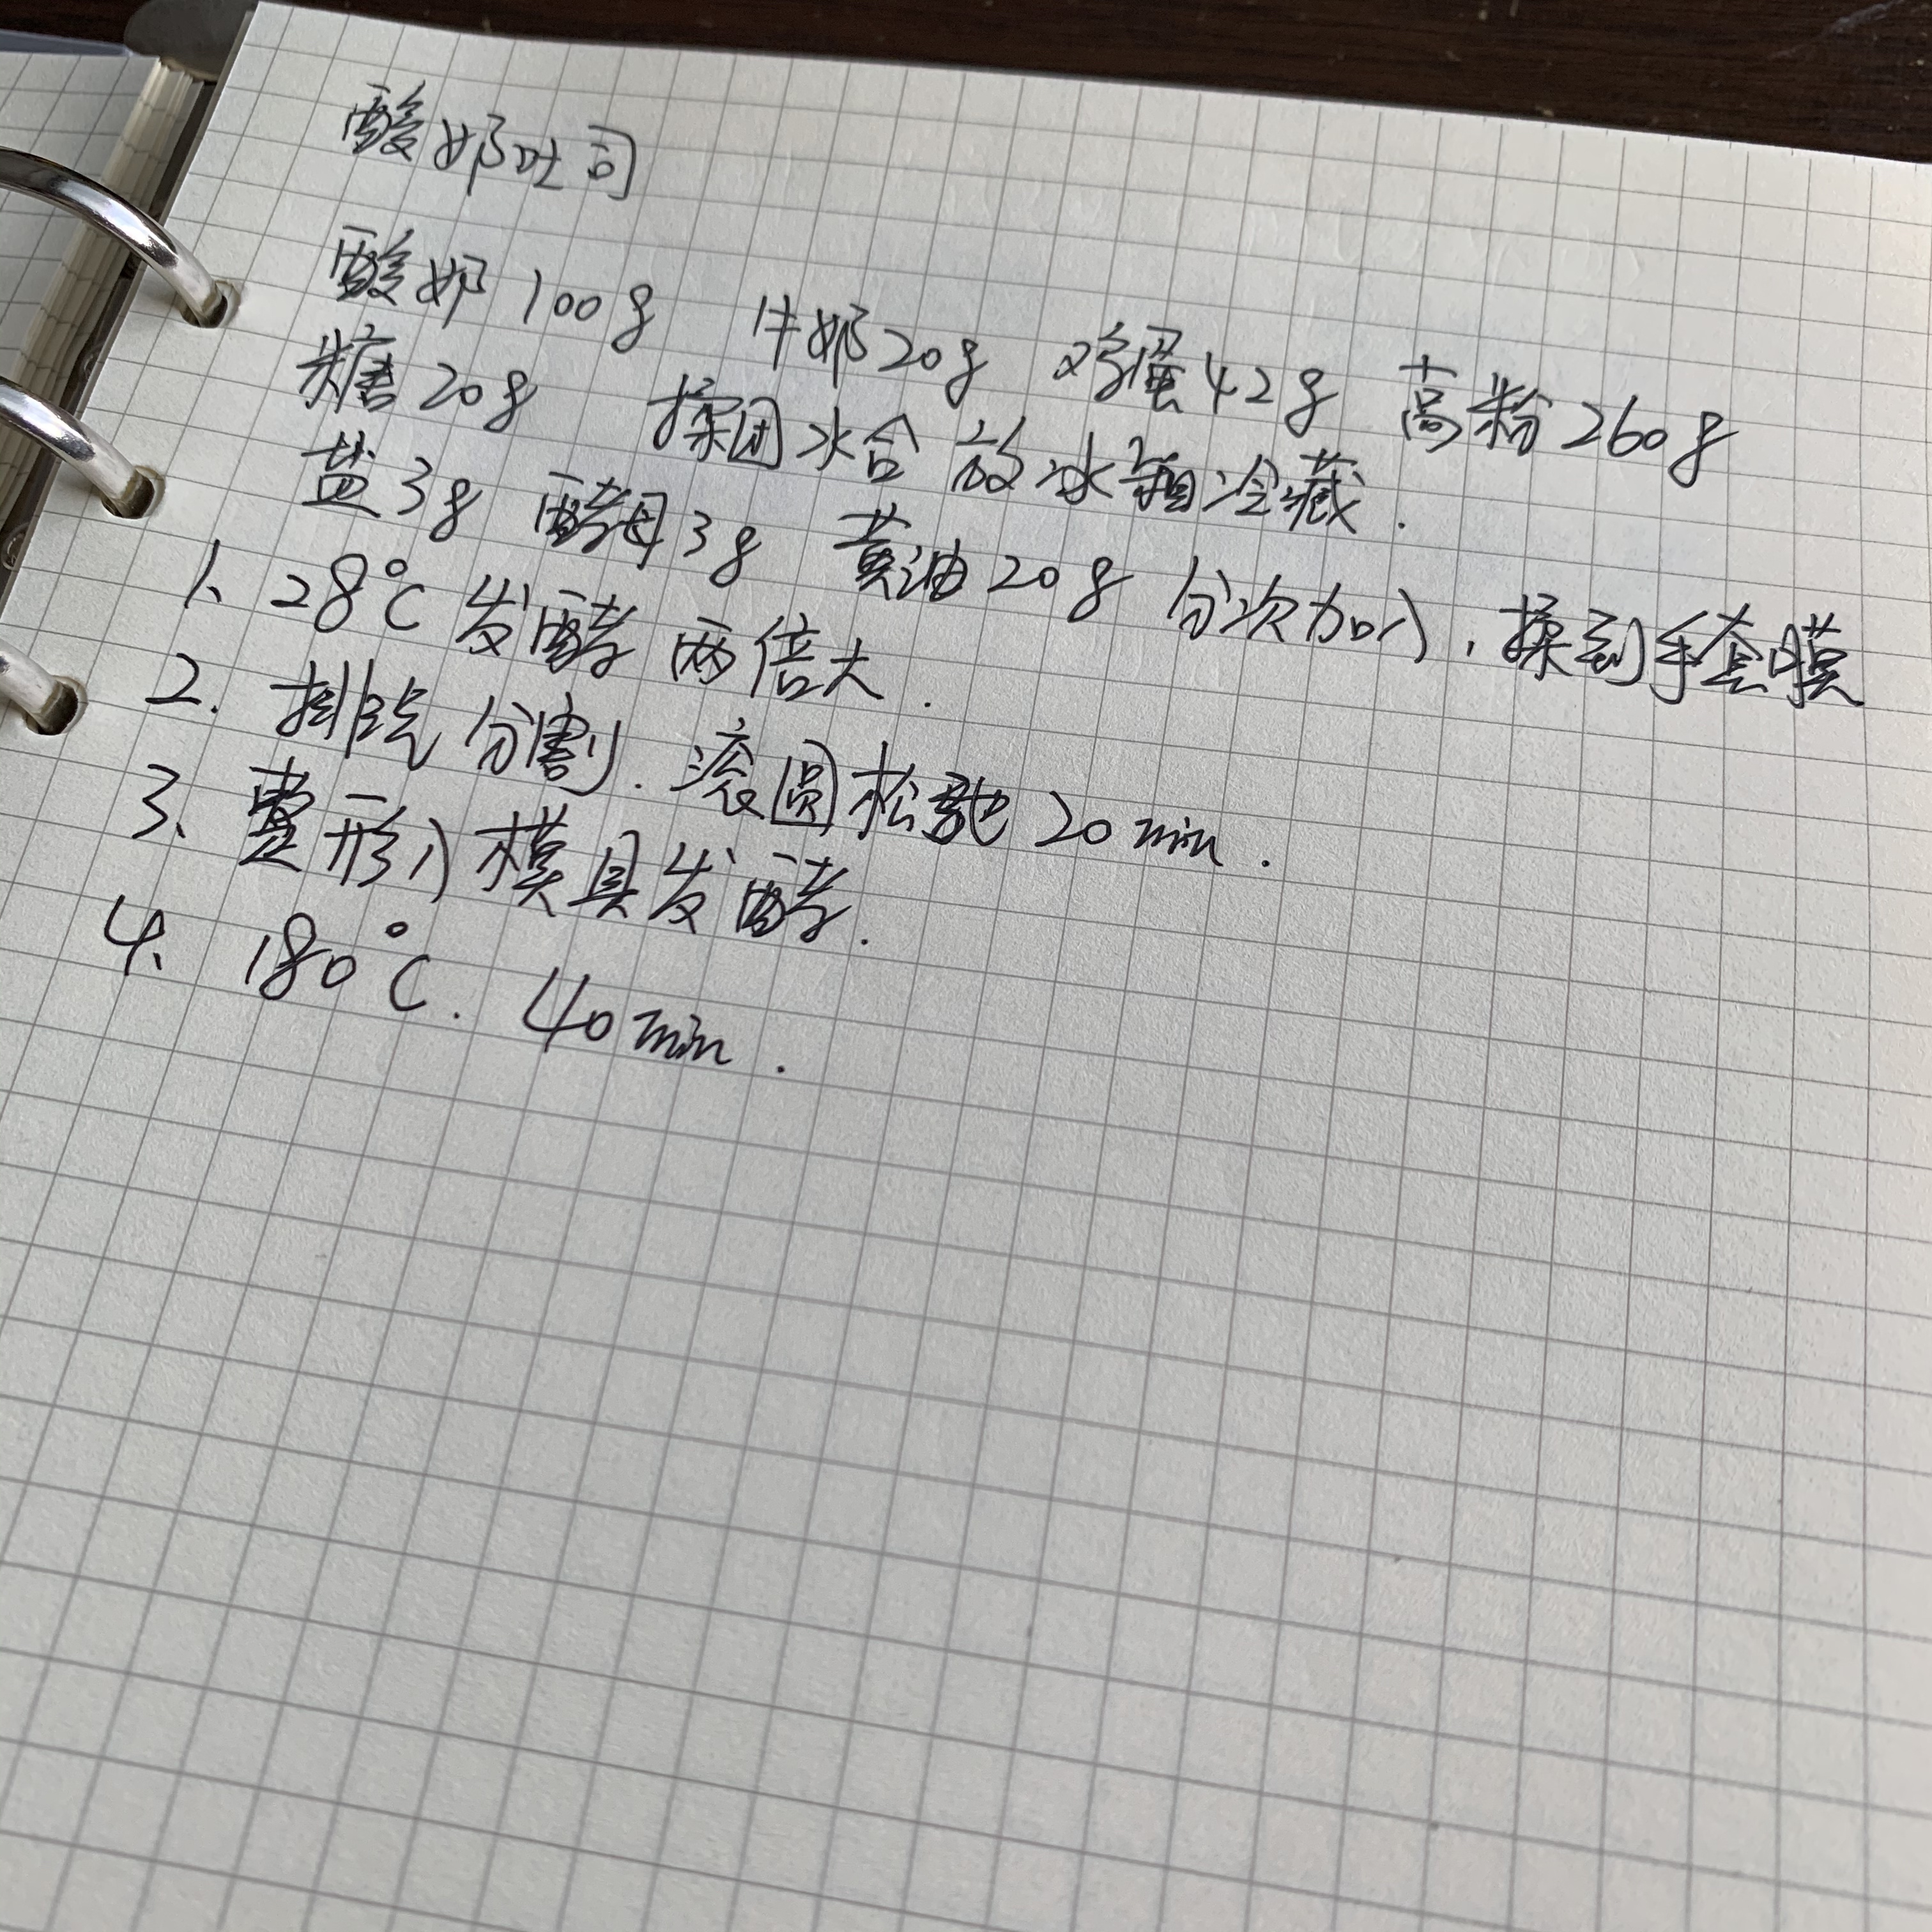 酸奶吐司
酸奶100g 牛奶20g 鸡蛋42g 高粉260g
糖20g 揉团水合 放冰箱冷藏.
盐3g 酵母3g 黄油20g 分次加入,揉到手套膜
1、28℃发酵 两倍大.
2. 排气 分割. 滚圆松弛20min.
3、整形入模具发酵.
4、180℃. 40min.